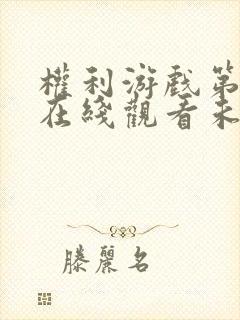 權利游戲第
在綫觀看未
滕麗名